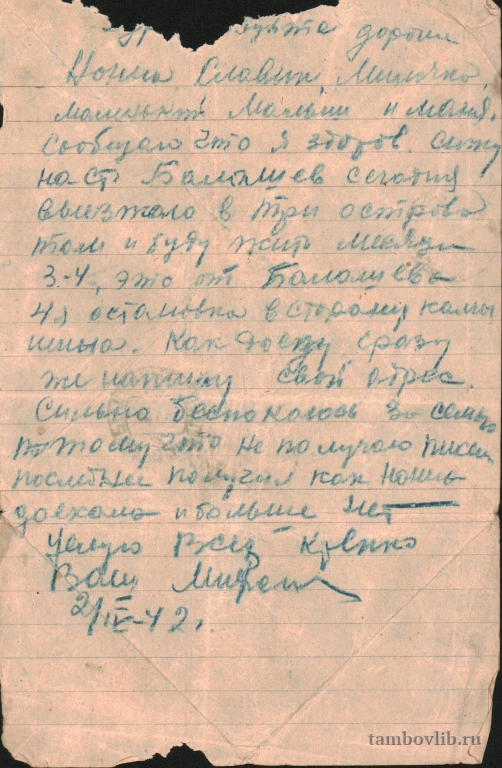 дорогие
Нонна, Славик, Милочка,
маленький Малыш и маня.
Сообщаю что я здоров. сижу
на ст. Балашев сегодня
выезжаю в Три острова
там и буду жить месяца
3-4, это от Балашева
4я остановка в сторону камы
шина. Как доеду сразу
же напишу свой адрес.
Сильно беспокоюсь за семью
потому что не получаю писем
последнее получил как Нонна
доехала и больше нет
Целую Всех крепко
Ваш
2/IV-42 г.
tambovlib.ru